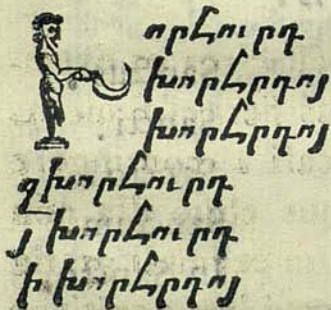 Խորհուրդ
խորհրդոյ
խորհրդոյ
զխորհուրդ
յ խորհուրդ
ի խորհրդոյ